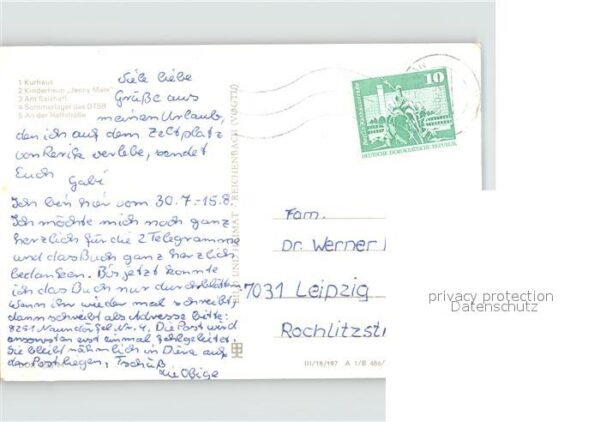 1 Kurhaus
2 Kinderheim „Jenny Marx"
3 Am Salzhaff
4 Sommerlager des DTSB
5 An der Haffstraße
Viele liebe
Grüße aus
meinem Urlaub,
den ich auf dem Zeltplatz
von Rerik verlebe, sendet
Euch
Gabi
Ich bin hier vom 30.7.-15.8.
Ich möchte mich noch ganz
herzlich für die 2 Telegramme
und das Buch ganz herzlich
bedanken. Bis jetzt konnte
ich das Buch nur durchblättern
Wenn ihr wieder mal schreibt,
dann schreibt als Adresse bitte:
8251 Naundörfel Nr. 4. Die Post wird
ansonsten erst einmal
Sie bleibt nähmlich in Diera auf
der Post liegen, Tschüß
die Obige
BILD UND HEIMAT · REICHENBACH (VOGTL)
10
DEUTSCHE DEMOKRATISCHE REPUBLIK
Fam.
Dr. Werner
7031 Leipzig
Rochlitzstr
III/18/197 A 1/B 486/
privacy protection
Datenschutz